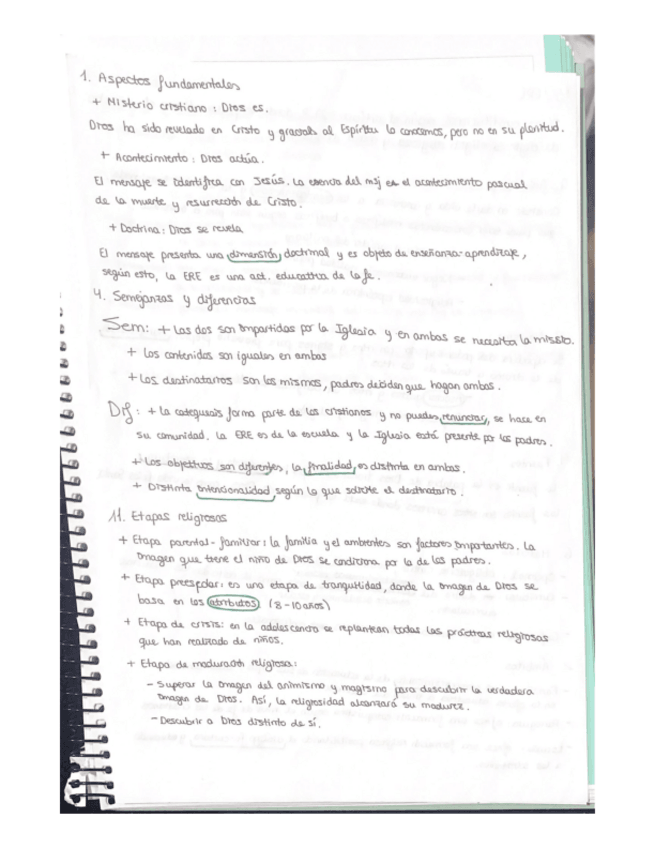 1. Aspectos fundamentales
+ Misterio cristiano: Dios es.
Dios ha sido revelado en Cristo y gracias al Espíritu lo conocemos, pero no en su plenitud.
+ Acontecimiento: Dios actúa.
El mensaje se identifica con Jesús. La esencia del msj es el acontecimiento pascual
de la muerte y resurrección de Cristo.
+ Doctrina: Dios se revela
El mensaje presenta una dimensión doctrinal y es objeto de enseñanza-aprendizaje,
según esto, la ERE es una act. educativa de la fe.
4. Semejanzas y diferencias
Sem: + Las dos son impartidas por la Iglesia y en ambas se necesita la missio.
+ Los contenidos son iguales en ambas
+ Los destinatarios son los mismos, padres deciden que hagan ambas.
Dif: + La catequesis forma parte de los cristianos y no puedes renunciar, se hace en
su comunidad. La ERE es de la escuela y la Iglesia está presente por los padres.
+ Los objetivos son diferentes, la finalidad es distinta en ambas.
+ Distinta intencionalidad según lo que solicite el destinatario.
11. Etapas religiosas
+ Etapa parental-familiar: la familia y el ambientes son factores importantes. La
imagen que tiene el niño de Dios se condiciona por la de los padres.
+ Etapa preescolar: es una etapa de tranquilidad, donde la imagen de Dios se
basa en los atributos (8-10 años)
+ Etapa de crisis: en la adolescencia se replantean todas las prácticas religiosas
que han realizado de niños.
+ Etapa de maduración religiosa:
- Superar la imagen del animismo y magismo para descubrir la verdadera
imagen de Dios. Así, la religiosidad alcanzará su madurez.
- Descubrir a Dios distinto de sí.